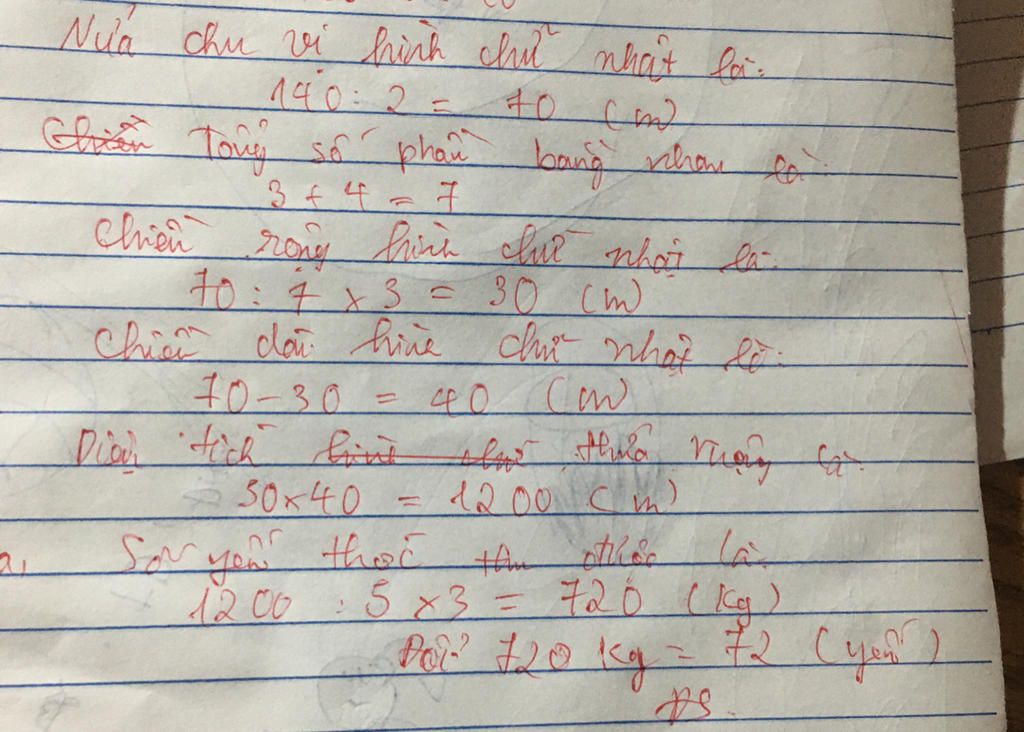 Nửa chu vi hình chữ nhật là:
140 : 2 = 70 (m)
Tổng số phần bằng nhau là:
3 + 4 = 7
Chiều rộng hình chữ nhật là:
70 : 7 x 3 = 30 (m)
Chiều dài hình chữ nhật là:
70 - 30 = 40 (m)
Diện tích hình chữ thửa ruộng là:
30 x 40 = 1200 (m)
a, Số yến thóc thu được là:
1200 : 5 x 3 = 720 (kg)
Đổi 720 kg = 72 (yến)
ĐS.